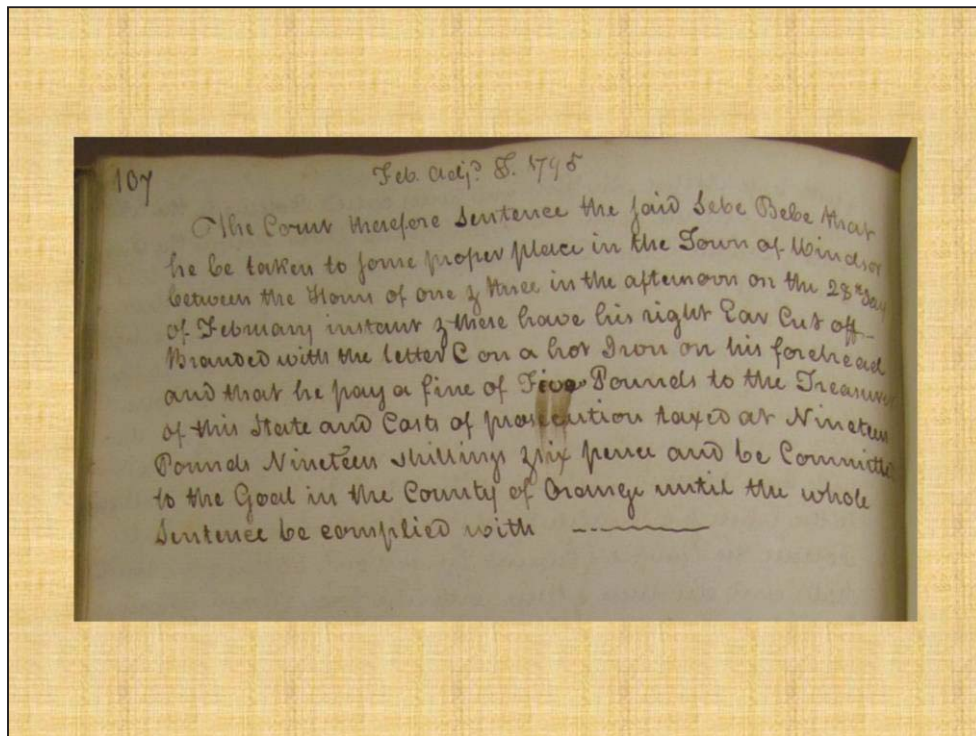 107
Feb. Adjd S. 1795
The Court therefore Sentence the said Sebe Bebe that
he be taken to some proper place in the Town of Windsor
between the Hours of one & three in the afternoon on the 28th day
of February instant & there have his right Ear Cut off
Branded with the letter C on a hot Iron on his forehead
and that he pay a fine of Five Pounds to the Treasurer
of this State and Costs of prosecution taxed at Nineteen
Pounds Nineteen shillings & six pence and be Committed
to the Goal in the County of Orange until the whole
Sentence be complied with